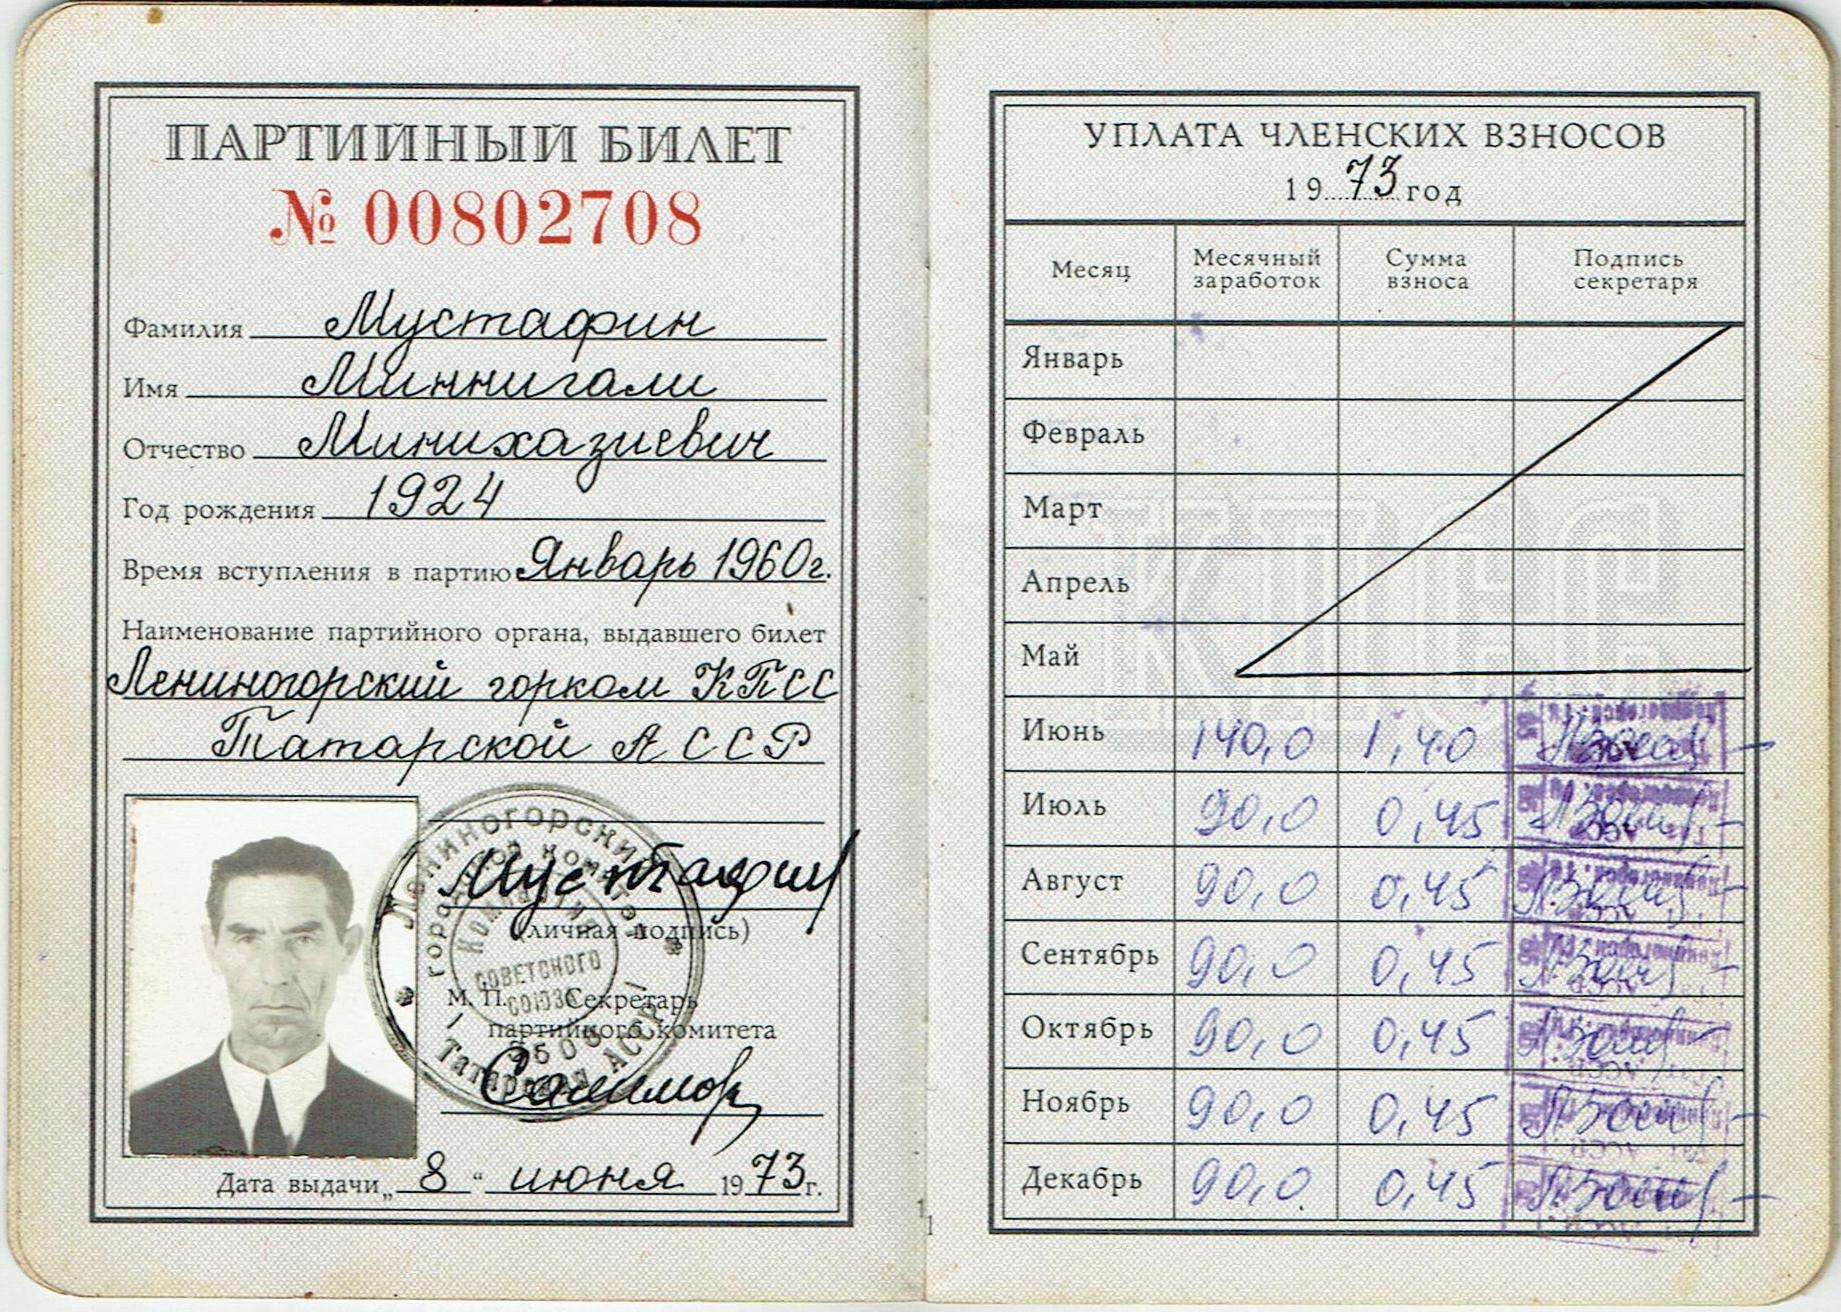 ПАРТИЙНЫЙ БИЛЕТ
№ 00802708
Фамилия Мустафин
Имя Миннигали
Отчество Минихазиевич
Год рождения 1924
Время вступления в партию Январь 1960г.
Наименование партийного органа, выдавшего билет
Лениногорский горком КПСС
Татарской АССР
Мустафин
(личная подпись)
М. П. Секретарь
партийного комитета
Лениногорский
городской комитет
Компартия
СОВЕТСКОГО
СОЮЗА
Татарская АССР
Дата выдачи „8“ июня 1973г.
УПЛАТА ЧЛЕНСКИХ ВЗНОСОВ
1973 год
Месяц Месячный заработок Сумма взноса Подпись секретаря
Январь
Февраль
Март
Апрель
Май
Июнь 140,0 1,40
Июль 90,0 0,45
Август 90,0 0,45
Сентябрь 90,0 0,45
Октябрь 90,0 0,45
Ноябрь 90,0 0,45
Декабрь 90,0 0,45
КПСС